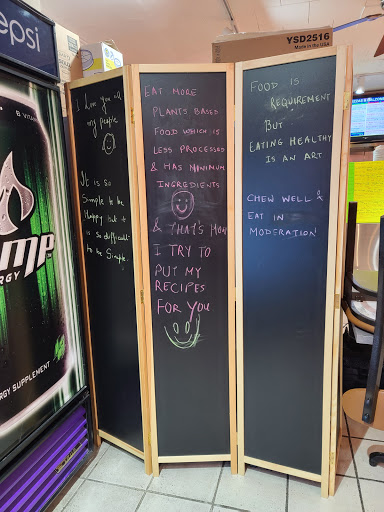 epsi
YSD2516
Made in the USA
B VITA
MP
ERGY
RGY SUPPLEMENT
I love you all
my people
It is so
Simple to be
Happy but it
is so difficult
to be Simple.
EAT MORE
PLANTS BASED
FOOD WHICH IS
LESS PROCESSED
& HAS MINIMUM
INGREDIENTS
& THAT'S HOW
I TRY TO
PUT MY
RECIPES
FOR YOU
FOOD IS
REQUIREMENT
BUT
EATING HEALTHY
IS AN ART
CHEW WELL &
EAT IN
MODERATION!